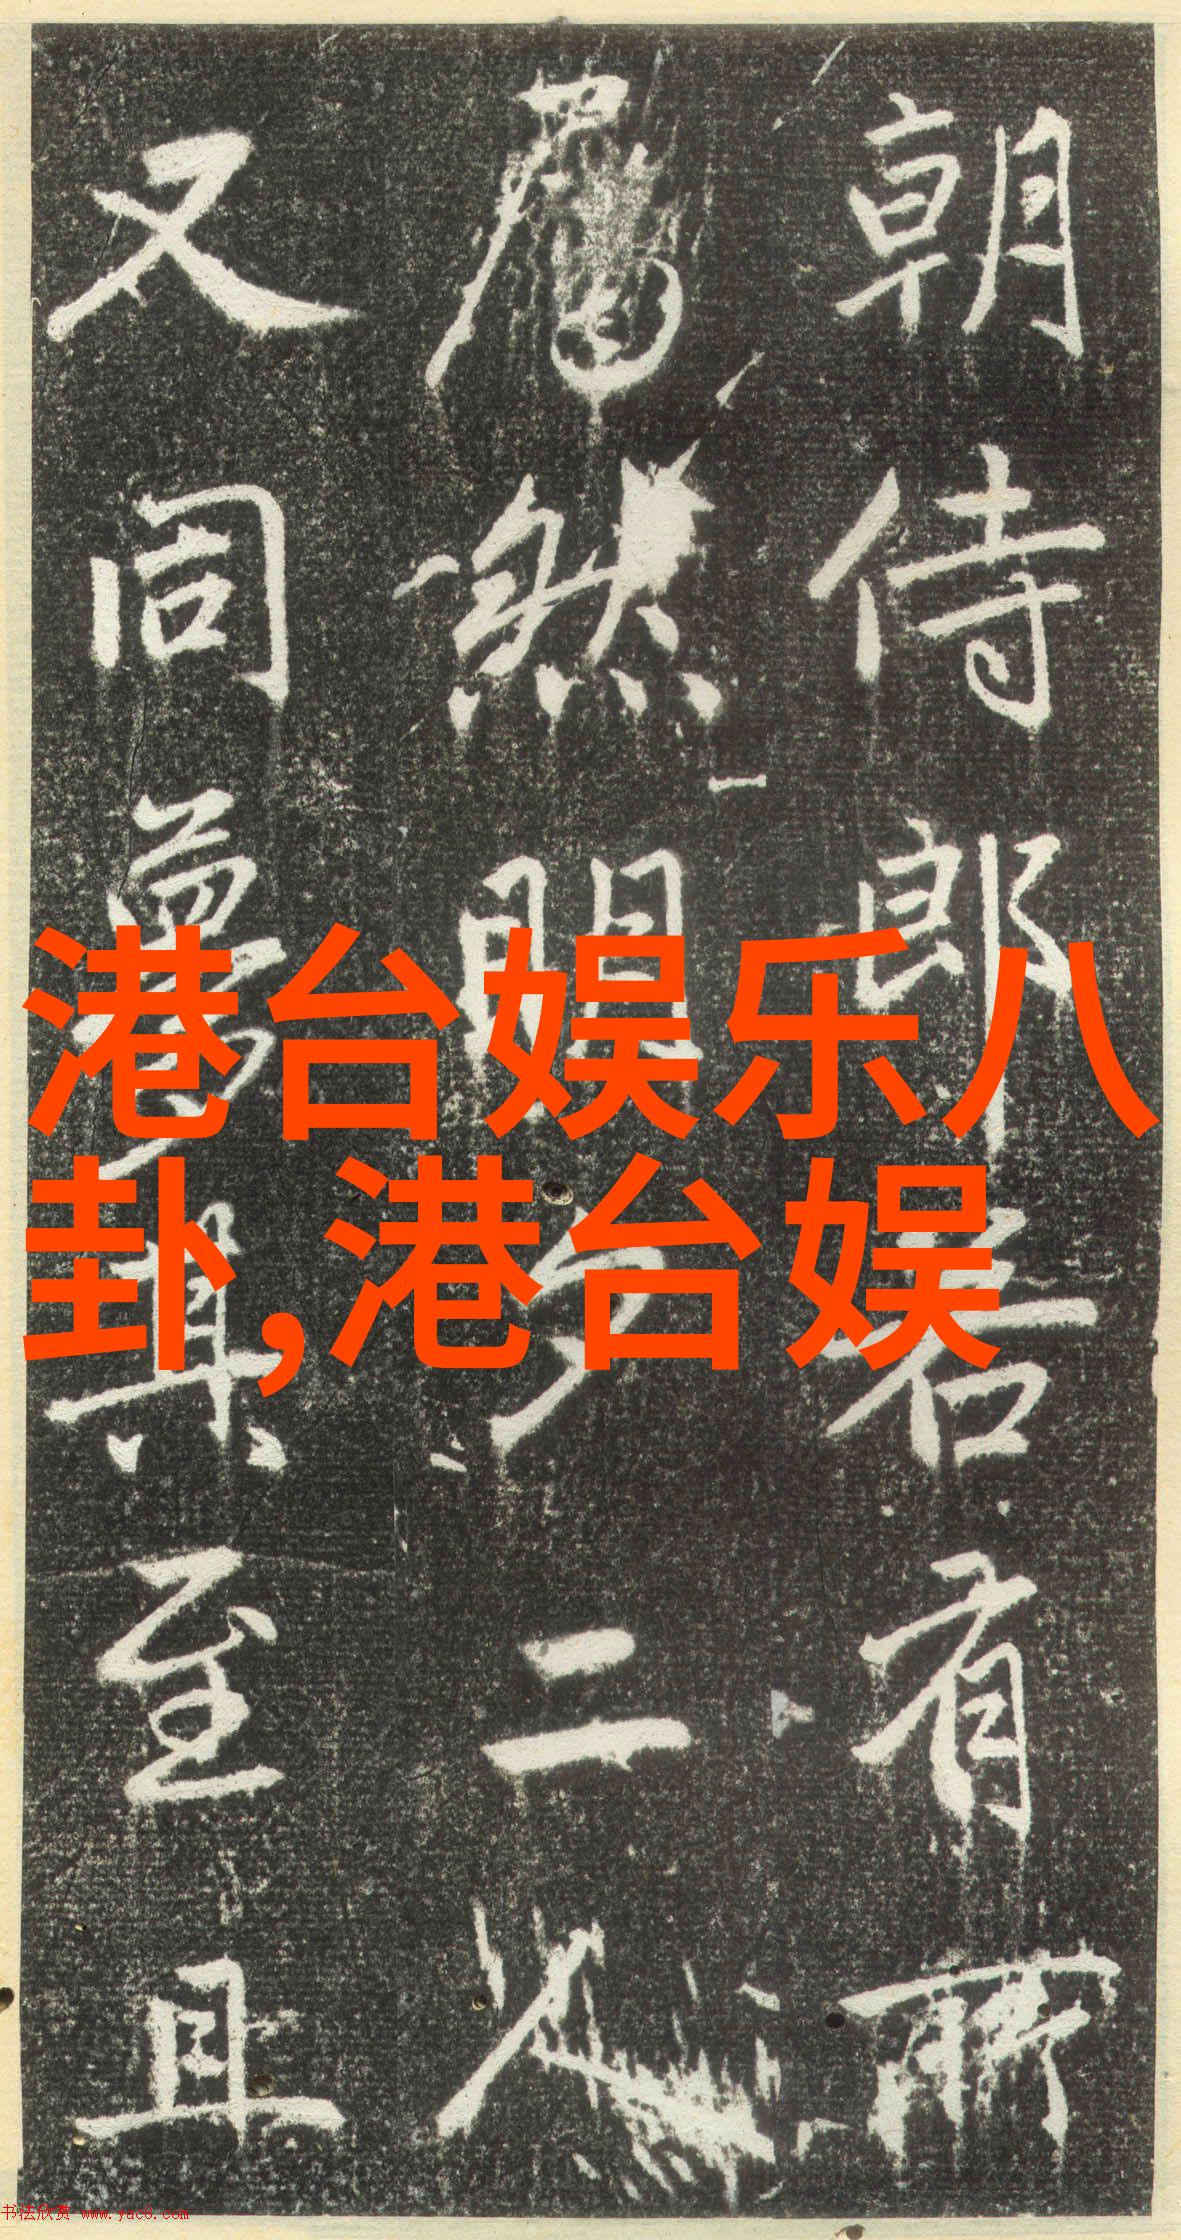 朝侍郎若有所
屬然開夕二人
又同夢其至且
港台娱乐八
卦,港台娱
书法欣赏 www.yac8.com